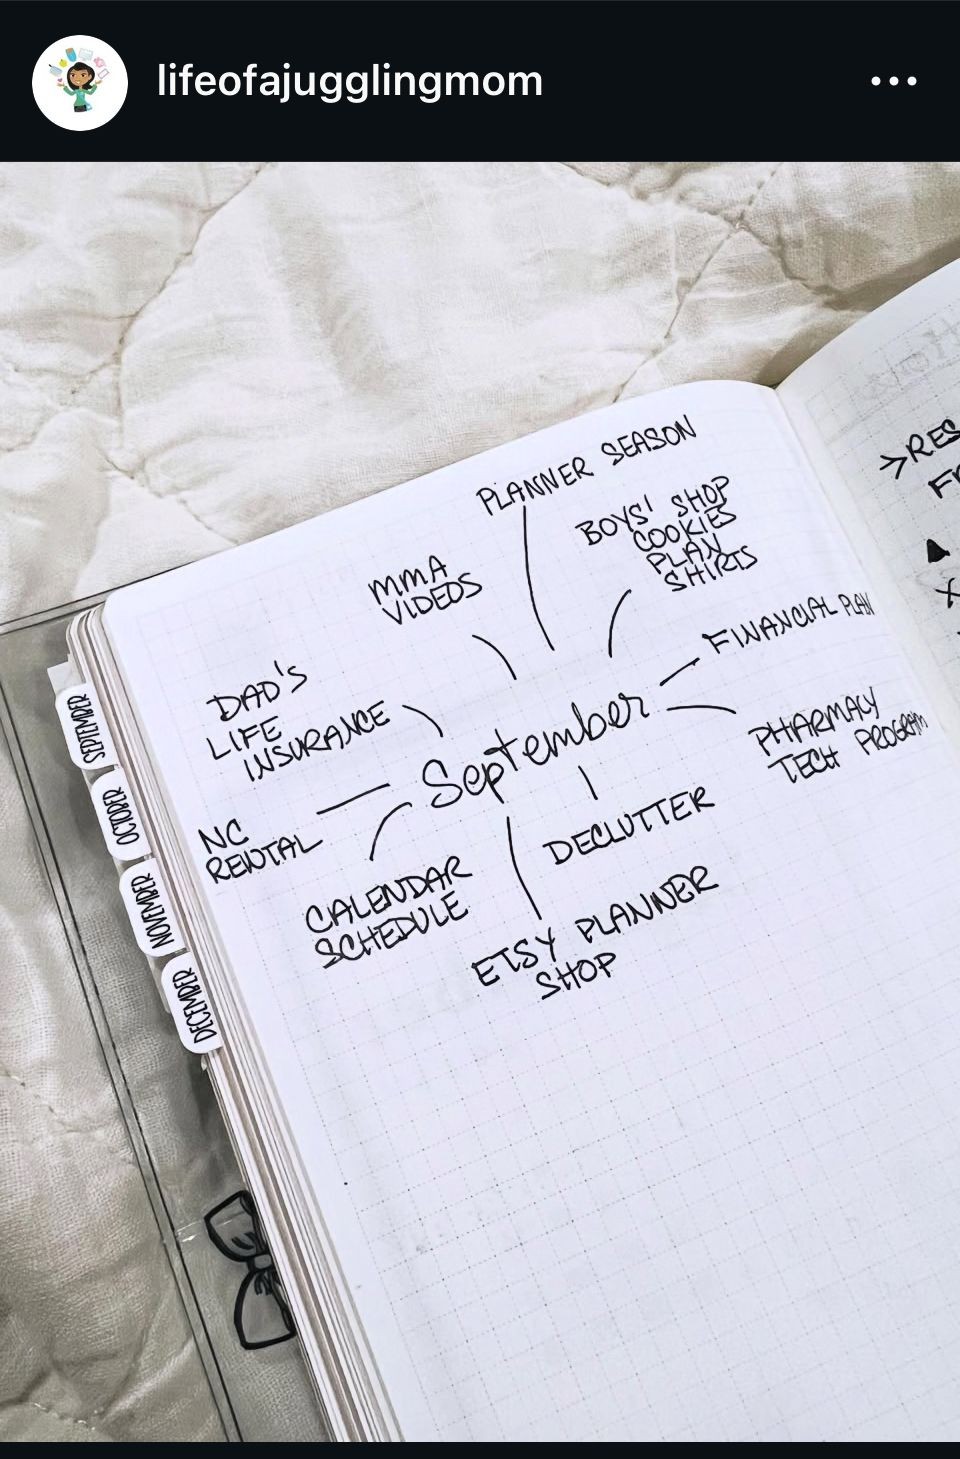 lifeofajugglingmom
PLANNER SEASON
BOYS' SHOP
COOKIES
PLAN
SHIRTS
MMA
VIDEOS
FINANCIAL PLAN
DAD'S
LIFE
INSURANCE
September
PHARMACY
TECH PROGRAM
NC
RENTAL
DECLUTTER
CALENDAR
SCHEDULE
ETSY PLANNER
SHOP
SEPTEMBER
OCTOBER
NOVEMBER
DECEMBER